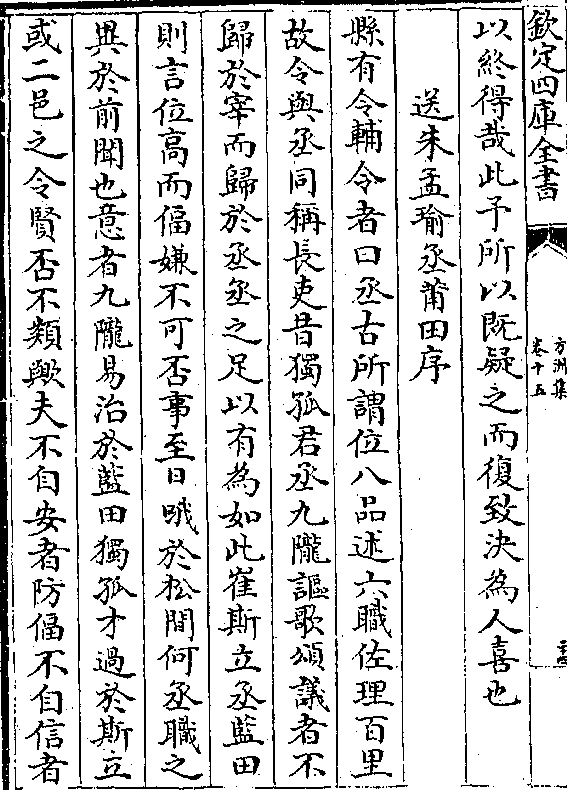 欽定四庫全書
方洲集
卷十五
以終得哉此予所以既疑之而復致決為人喜也
送朱孟瑜丞莆田序
縣有令輔令者曰丞古所謂位八品述六職佐理百里
故令與丞同稱長吏昔獨孤君丞九隴謳歌頌議者不
歸於宰而歸於丞丞之足以有為如此崔斯立丞藍田
則言位高而偪嫌不可否事至日哦於松間何丞職之
異於前聞也意者九隴易治於藍田獨孤才過於斯立
或二邑之令賢否不類歟夫不自安者防偪不自信者